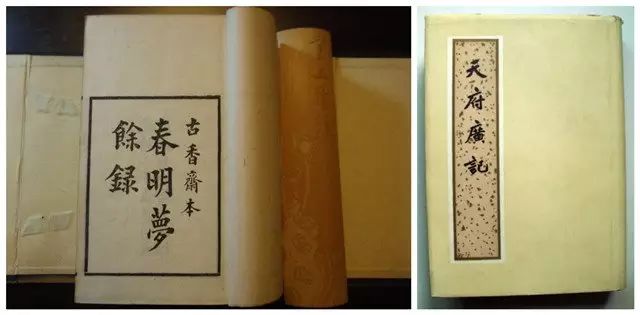 古香齋本
春明夢
餘錄
天府廣記